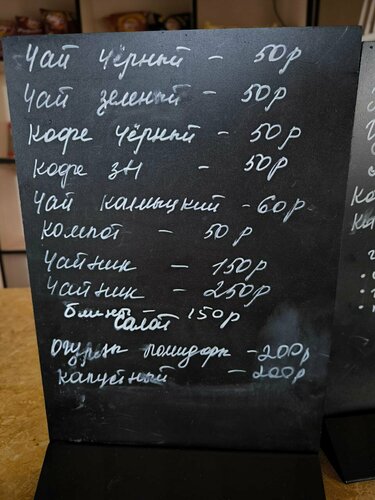 Чай чёрный - 50р
Чай зеленый - 50р
Кофе чёрный - 50р
Кофе 3в1 - 50р
Чай калмыцкий - 60р
Компот - 50р
Чайник - 150р
Чайник - 250р
Блины 150р
Салат
Огурец помидоры - 200р
Капустный - 200р